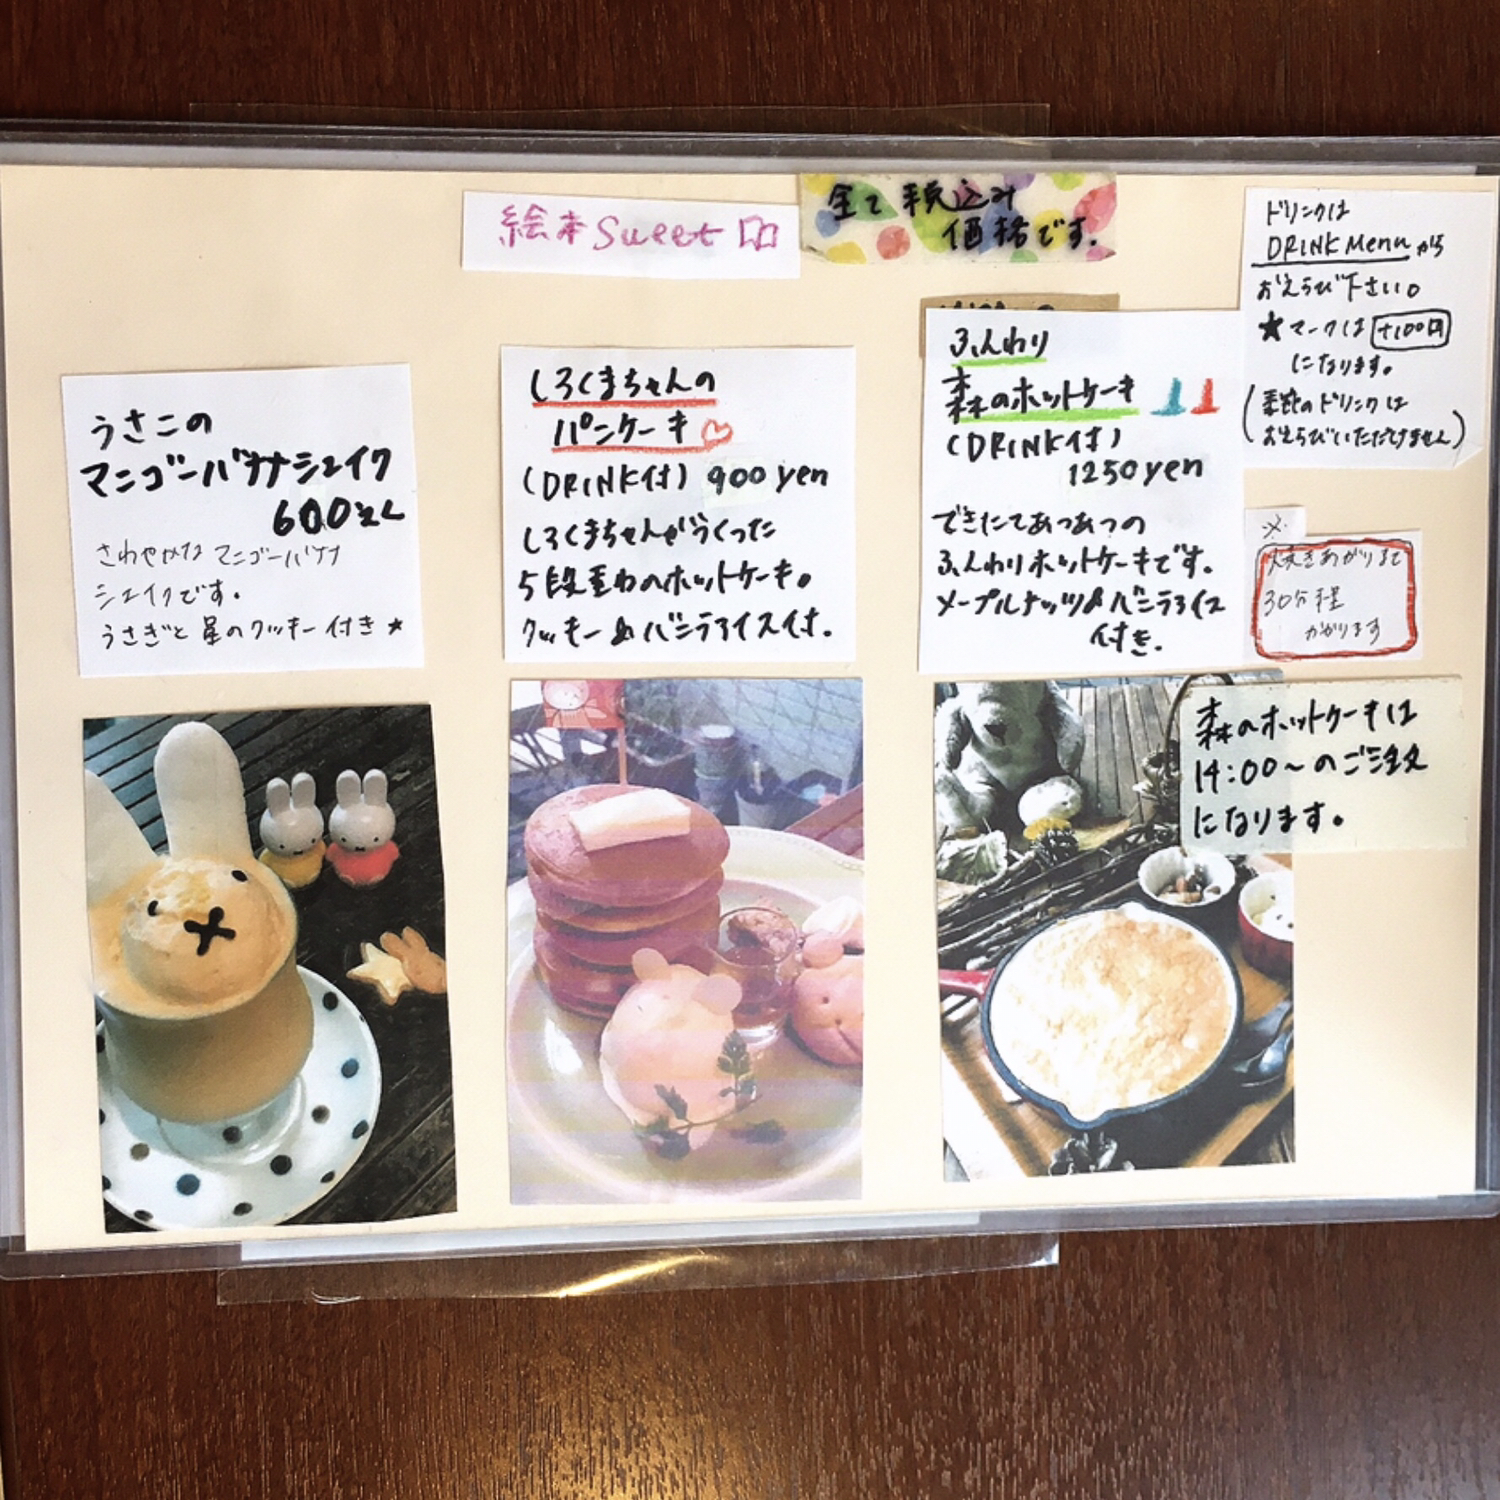 絵本Sweet
全て税込み
価格です.
ドリンクは
DRINK Menuから
おえらび下さい。
★マークは+100円
になります。
(季節のドリンクは
おえらびいただけません)
うさこの
マンゴーバナナシェイク
600えん
さわやかなマンゴーバナナ
シェイクです.
うさぎと星のクッキー付き★
しろくまちゃんの
パンケーキ♡
(DRINK付) 900yen
しろくまちゃんがつくった
5段重ねのホットケーキ。
クッキー&バニラアイス付.
ふんわり
森のホットケーキ
(DRINK付)
1250yen
できたてあつあつの
ふんわりホットケーキです.
メープルナッツ&バニラアイス
付き.
※
焼きあがりまで
30分程
かかります
森のホットケーキは
14:00〜のご注文
になります。